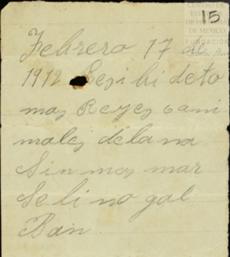 15
Febrero 17 de
1912 Resibi deto
mas Reyes 6 ani
males delana
Sin mas mar
selino gal
Ban